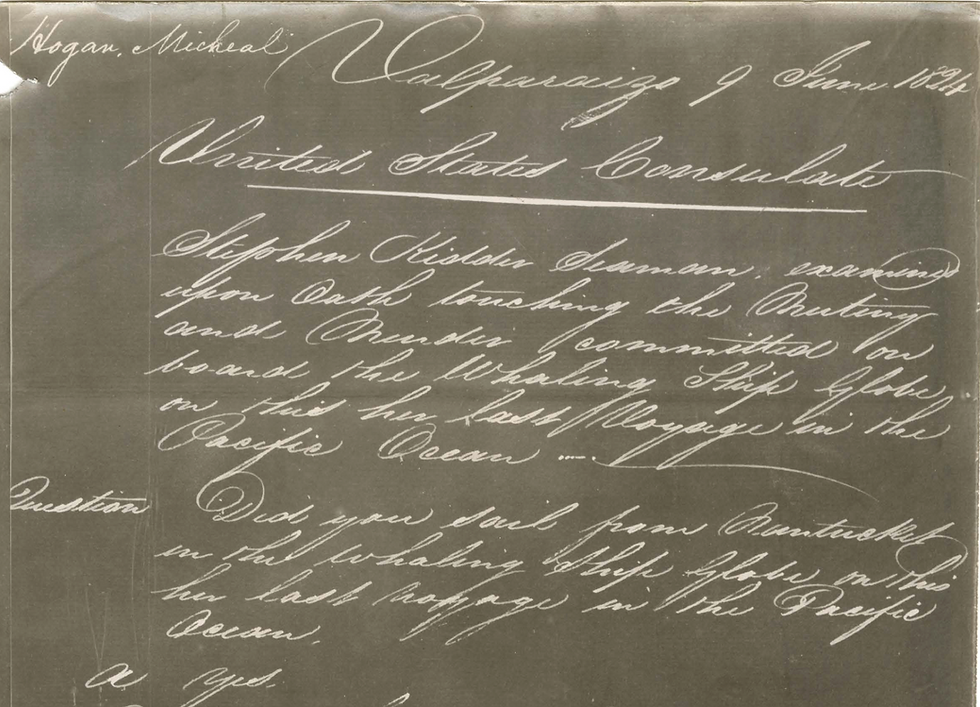 Hogan, Micheal
Valparaizo 9 June 1824
United States Consulate
Stephen Kidder Seaman examined
upon Oath touching the Mutiny
and Murder committed on
board the Whaling Ship Globe
on this her last Voyage in the
Pacific Ocean —.
Question Did you sail from Nantucket
in the whaling Ship Globe on this
her last voyage in the Pacific
Ocean.
a yes.